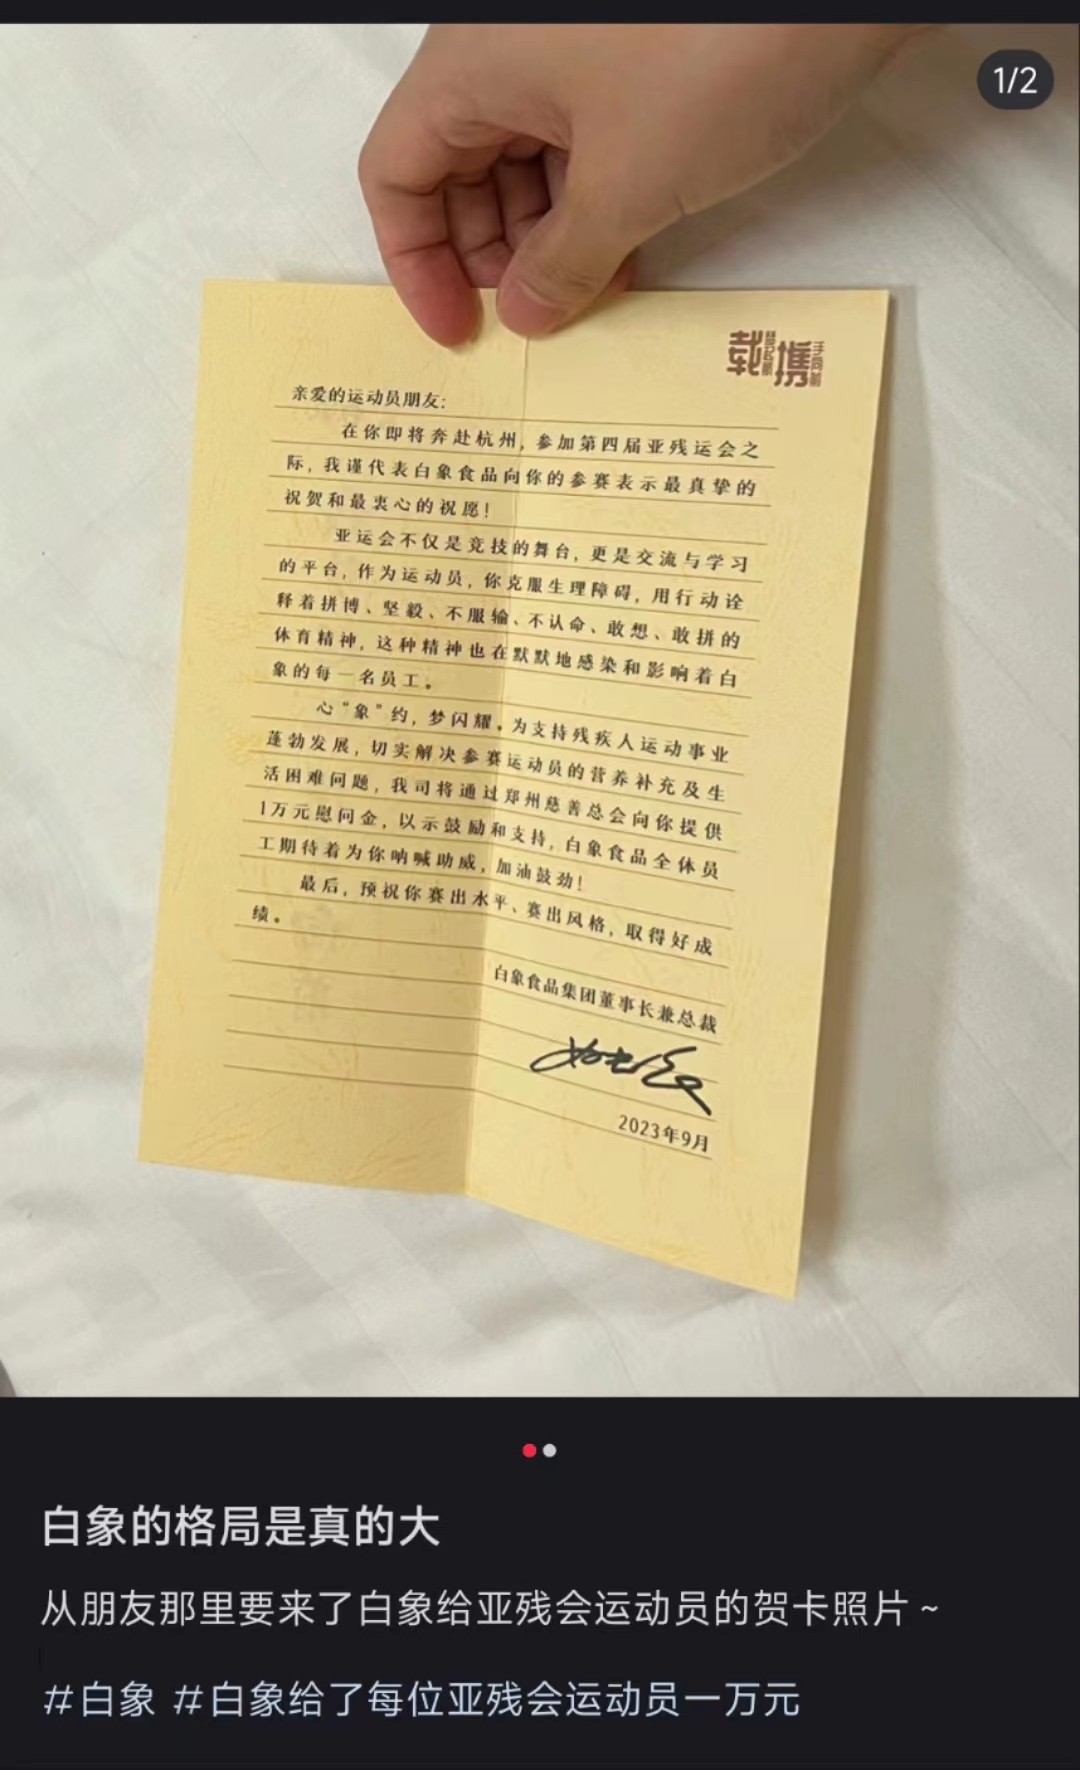 1/2
载梦起航
携手同前
亲爱的运动员朋友:
在你即将奔赴杭州，参加第四届亚残运会之
际，我谨代表白象食品向你的参赛表示最真挚的
祝贺和最衷心的祝愿！
亚运会不仅是竞技的舞台，更是交流与学习
的平台，作为运动员，你克服生理障碍，用行动诠
释着拼博、坚毅、不服输、不认命、敢想、敢拼的
体育精神，这种精神也在默默地感染和影响着白
象的每一名员工。
心“象”约，梦闪耀。为支持残疾人运动事业
蓬勃发展，切实解决参赛运动员的营养补充及生
活困难问题，我司将通过郑州慈善总会向你提供
1万元慰问金，以示鼓励和支持，白象食品全体员
工期待着为你呐喊助威，加油鼓劲！
最后，预祝你赛出水平、赛出风格，取得好成
绩。
白象食品集团董事长兼总裁
2023年9月
白象的格局是真的大
从朋友那里要来了白象给亚残会运动员的贺卡照片~
#白象 #白象给了每位亚残会运动员一万元